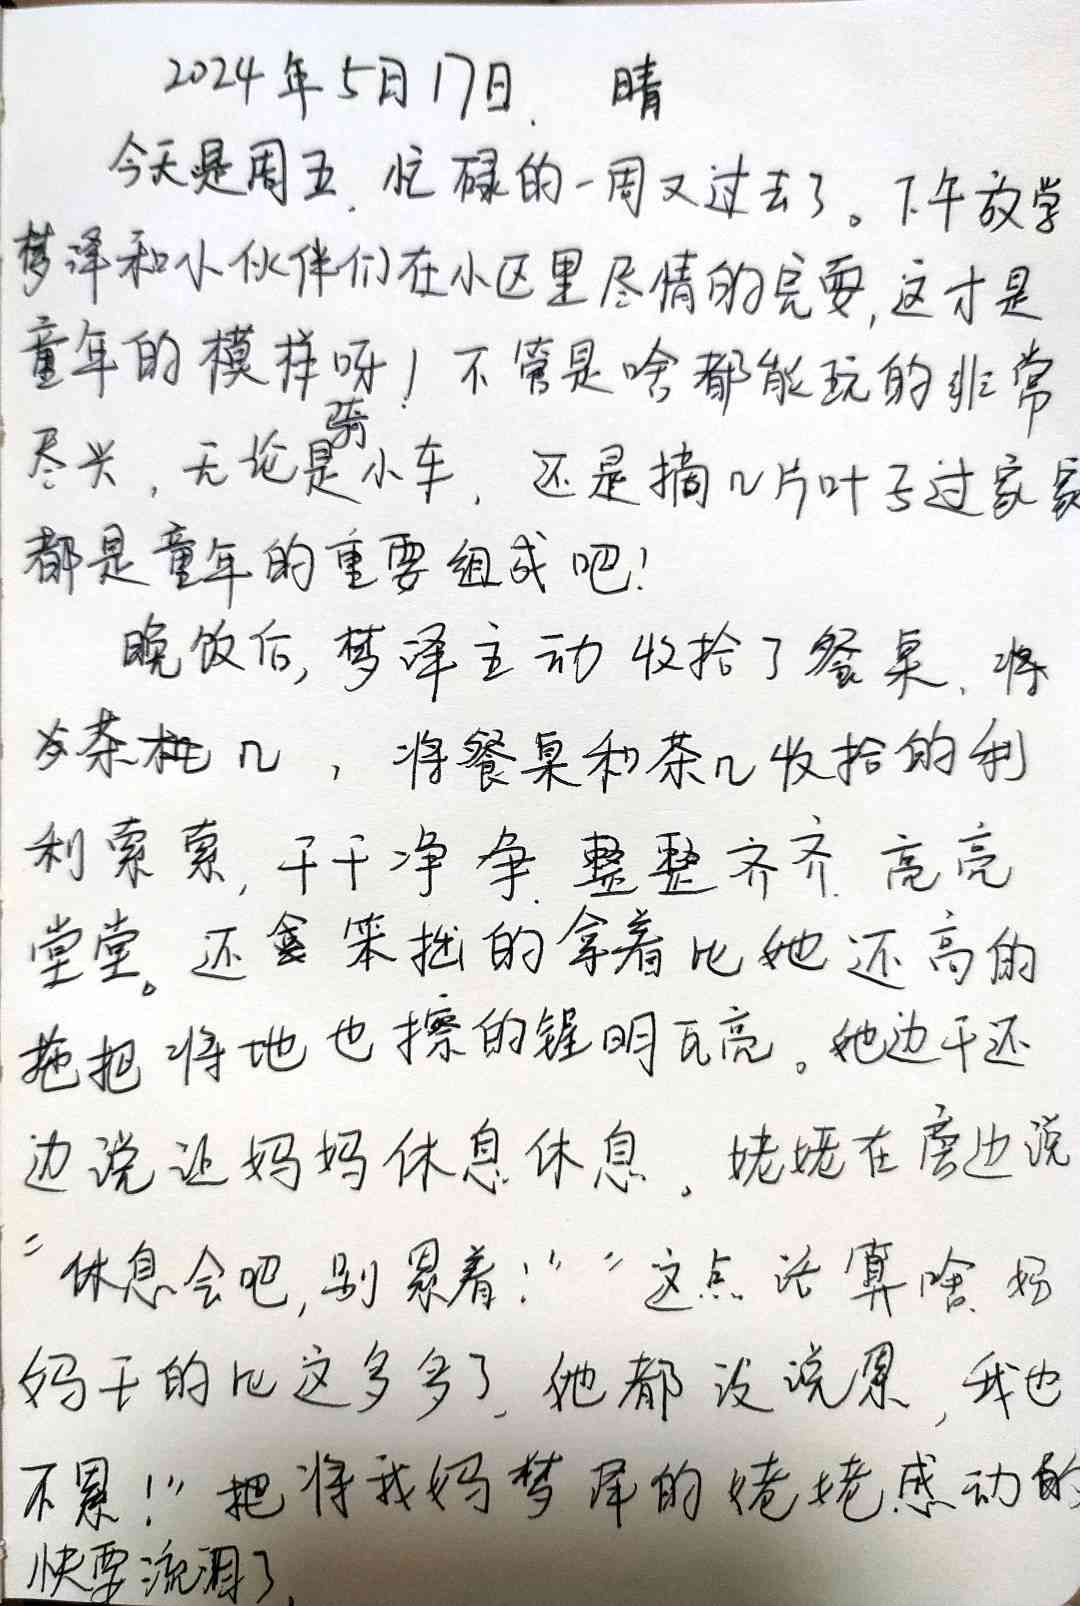 2024年5月17日. 晴
今天是周五、忙碌的一周又过去了。下午放学
梦泽和小伙伴们在小区里尽情的完耍,这才是
童年的模样呀!不管是啥都能玩的非常
尽兴,无论是骑小车,还是摘几片叶子过家家
都是童年的重要组成吧!
晚饭后,梦泽主动收拾了餐桌、将
茶几,将餐桌和茶几收拾的利
利索索,干干净净、整整齐齐、亮亮
堂堂。还笨拙的拿着比她还高的
拖把将地也擦的锃明瓦亮。她边干还
边说让妈妈休息休息。姥姥在旁边说
"休息会吧,别累着!""这点活算啥、妈
妈干的比这多多了、她都没说累,我也
不累!"把将我妈梦泽的姥姥感动的
快要流泪了、